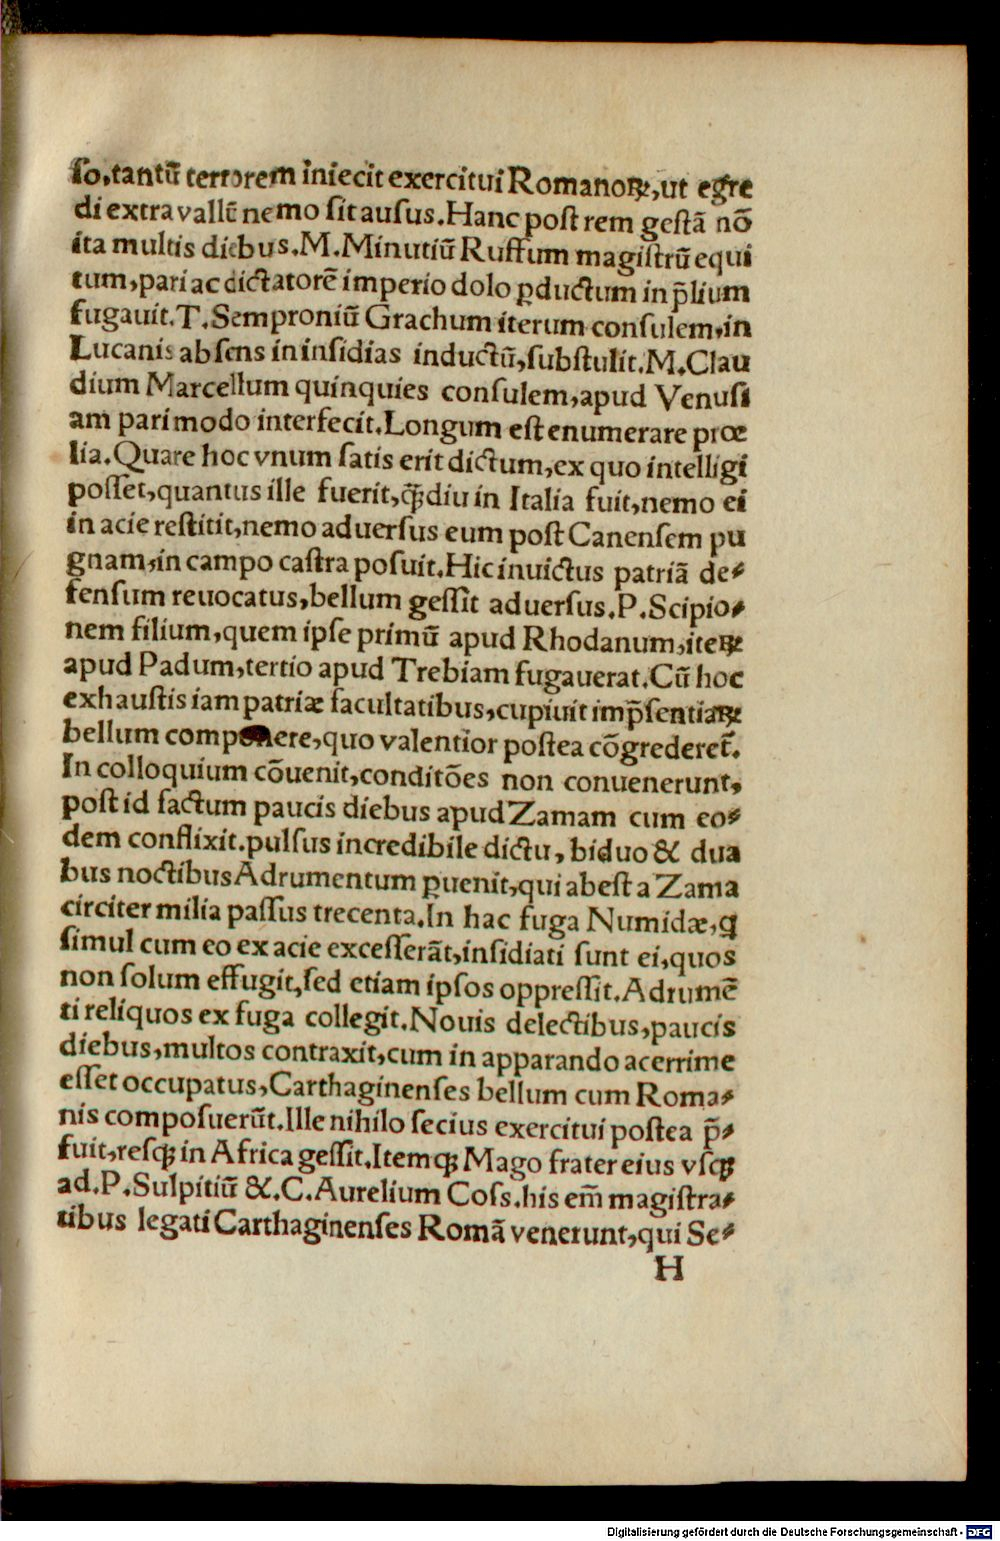 ſo,tantū terrorem iniecit exercitui Romanoꝝ,ut egre
di extra vallū nemo ſit auſus.Hanc poſt rem geſtā nō
ita multis diebus.M.Minutiū Ruffum magiſtrū equi
tum,pari ac dictatorē imperio dolo ꝓductum in p̄lium
fugauit.T.Semproniū Grachum iterum conſulem,in
Lucanis abſens in inſidias inductū,ſubſtulit.M.Clau
dium Marcellum quinquies conſulem,apud Venuſi
am pari modo interfecit.Longum eſt enumerare prœ
lia.Quare hoc vnum ſatis erit dictum,ex quo intelligi
poſſet,quantus ille fuerit,ꝙdiu in Italia fuit,nemo ei
in acie reſtitit,nemo aduerſus eum poſt Canenſem pu
gnam,in campo caſtra poſuit.Hic inuictus patriā de⸗
fenſum reuocatus,bellum geſſit aduerſus.P.Scipio⸗
nem filium,quem ipſe primū apud Rhodanum,iteꝝ
apud Padum,tertio apud Trebiam fugauerat.Cū hoc
exhauſtis iam patriæ facultatibus,cupiuit imp̄ſentiaꝝ
bellum componere,quo valentior poſtea cōgrederet̄.
In colloquium cōuenit,conditōes non conuenerunt,
poſt id factum paucis diebus apud Zamam cum eo⸗
dem conflixit.pulſus incredibile dictu, biduo & dua
bus noctibus Adrumentum ꝑuenit,qui abeſt a Zama
circiter milia paſſus trecenta.In hac fuga Numidæ,q
ſimul cum eo ex acie exceſſerāt,inſidiati ſunt ei,quos
non ſolum effugit,ſed etiam ipſos oppreſſit.Adrumē
ti reliquos ex fuga collegit.Nouis delectibus,paucis
diebus,multos contraxit,cum in apparando acerrime
eſſet occupatus,Carthaginenſes bellum cum Roma⸗
nis compoſuerūt.Ille nihilo ſecius exercitui poſtea p̄⸗
fuit,reſqꝫ in Africa geſſit.Itemqꝫ Mago frater eius vſqꝫ
ad.P.Sulpitiū &.C.Aurelium Coſs.his em̄ magiſtra⸗
tibus legati Carthaginenſes Romā venerunt,qui Se⸗
H
Digitalisierung gefördert durch die Deutsche Forschungsgemeinschaft - DFG